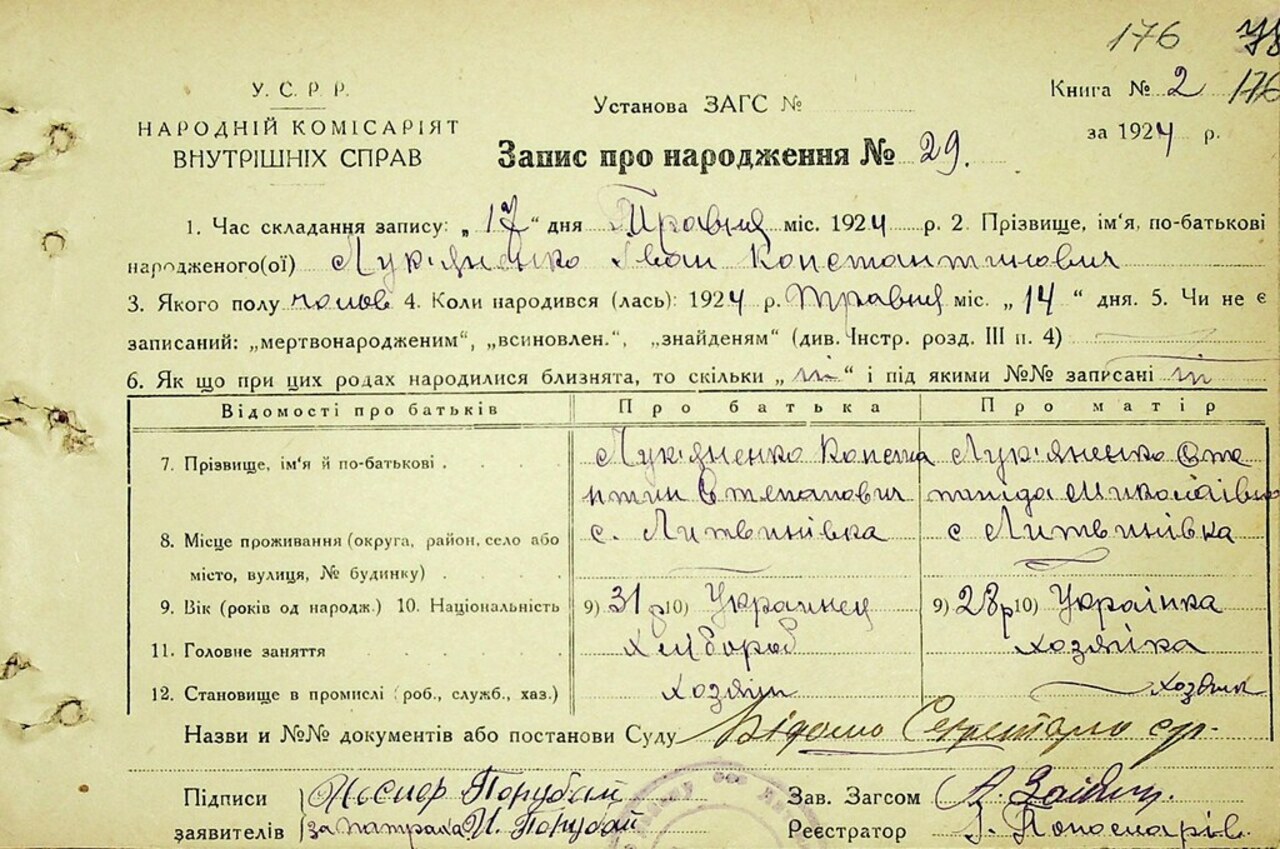 176
У. С. Р. Р.
НАРОДНІЙ КОМІСАРІЯТ
ВНУТРІШНІХ СПРАВ
Установа ЗАГС №
Книга № 2 176
за 1924 р.
Запис про народження № 29.
1. Час складання запису: „ 17 “ дня Травня міс. 1924 р. 2. Прізвище, ім'я, по-батькові
народженого(ої) Лук'яненко Іван Константинович
3. Якого полу чолов 4. Коли народився (лась): 1924 р. Травня міс. „ 14 “ дня. 5. Чи не є
записаний: „мертвонародженим“, „всиновлен.“, „знайденям“ (див. Інстр. розд. III п. 4)
6. Як що при цих родах народилися близнята, то скільки „ “ і під якими №№ записані
Відомості про батьків Про батька Про матір
7. Прізвище, ім'я й по-батькові . Лук'яненко Конста Лук'яненко Сте
нтин Степанович панида Миколаівна
8. Місце проживання (округа, район, село або с. Литвинівка с Литвинівка
місто, вулиця, № будинку) .
9. Вік (років од народж.) 10. Національність 9) 31 р 10) Украинец 9) 28 р 10) Українка
11. Головне заняття Хлібороб хозяйка
12. Становище в промислі (роб., служб., хаз.) хозяин
Назви и №№ документів або постанови Суду Відомо Секретарю
Підписи Иосиф Порубай Зав. Загсом
заявителів И. Порубай Реєстратор